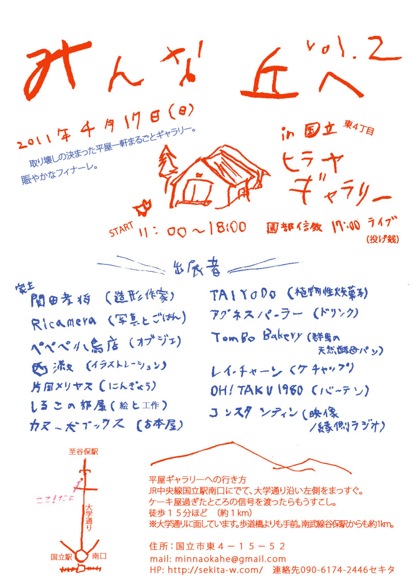 みんな丘へ vol.2
2011年4月17日(日)
取り壊しの決まった平屋一軒まるごとギャラリー。
賑やかなフィナーレ。
in 国立 東4丁目
ヒラヤ
ギャラリー
START 11:00〜18:00 園部信教 17:00 ライブ
(投げ銭)
出展者
家主
関田孝将(造形作家)
Ricamera(写真とごはん)
ペペペり鳥店(オブジェ)
西淑(イラストレーション)
片岡メリヤス(にんぎょう)
しるこの部屋(絵と工作)
カヌー犬ブックス(古本屋)
TAIYODO(植物性焼菓子)
アグネスパーラー(ドリンク)
TomBo Bakery(群馬の
天然酵母パン)
レイ・チャーン(ケチャップ)
OH!TAKU1980(バーテン)
コンスタンティン(映像
/縁側ラジオ)
至谷保駅
ここまがる
大学通り
国立駅 南口
平屋ギャラリーへの行き方
JR中央線国立駅南口にでて、大学通り沿い左側をまっすぐ。
ケーキ屋過ぎたところの信号を渡ったらもうすこし。
徒歩15分ほど (約1km)
※大学通りに面しています。歩道橋よりも手前。南武線谷保駅からも約1km。
住所:国立市東4-15-52
mail: minnaokahe@gmail.com
HP: http://sekita-w.com/ 連絡先090-6174-2446セキタ